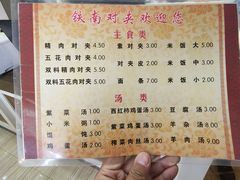 铁南对夹欢迎您
主食类
精肉对夹 4.50 素对夹 3.00 米饭大 5.00
五花肉对夹 4.00 对夹皮 2.00 米饭中 3.00
双料精肉对夹 5.50 面条 7.00 米饭小 2.00
双料五花肉对夹 5.00
汤类
紫菜汤 1.00 西红柿鸡蛋汤 3.00 豆腐汤 3.00
小米粥 1.00 紫菜鸡蛋汤 2.00 羊杂汤 8.00
馄饨 3.00 榨菜肉丝汤 3.00 羊肉汤 9.00
鸡蛋汤 2.00